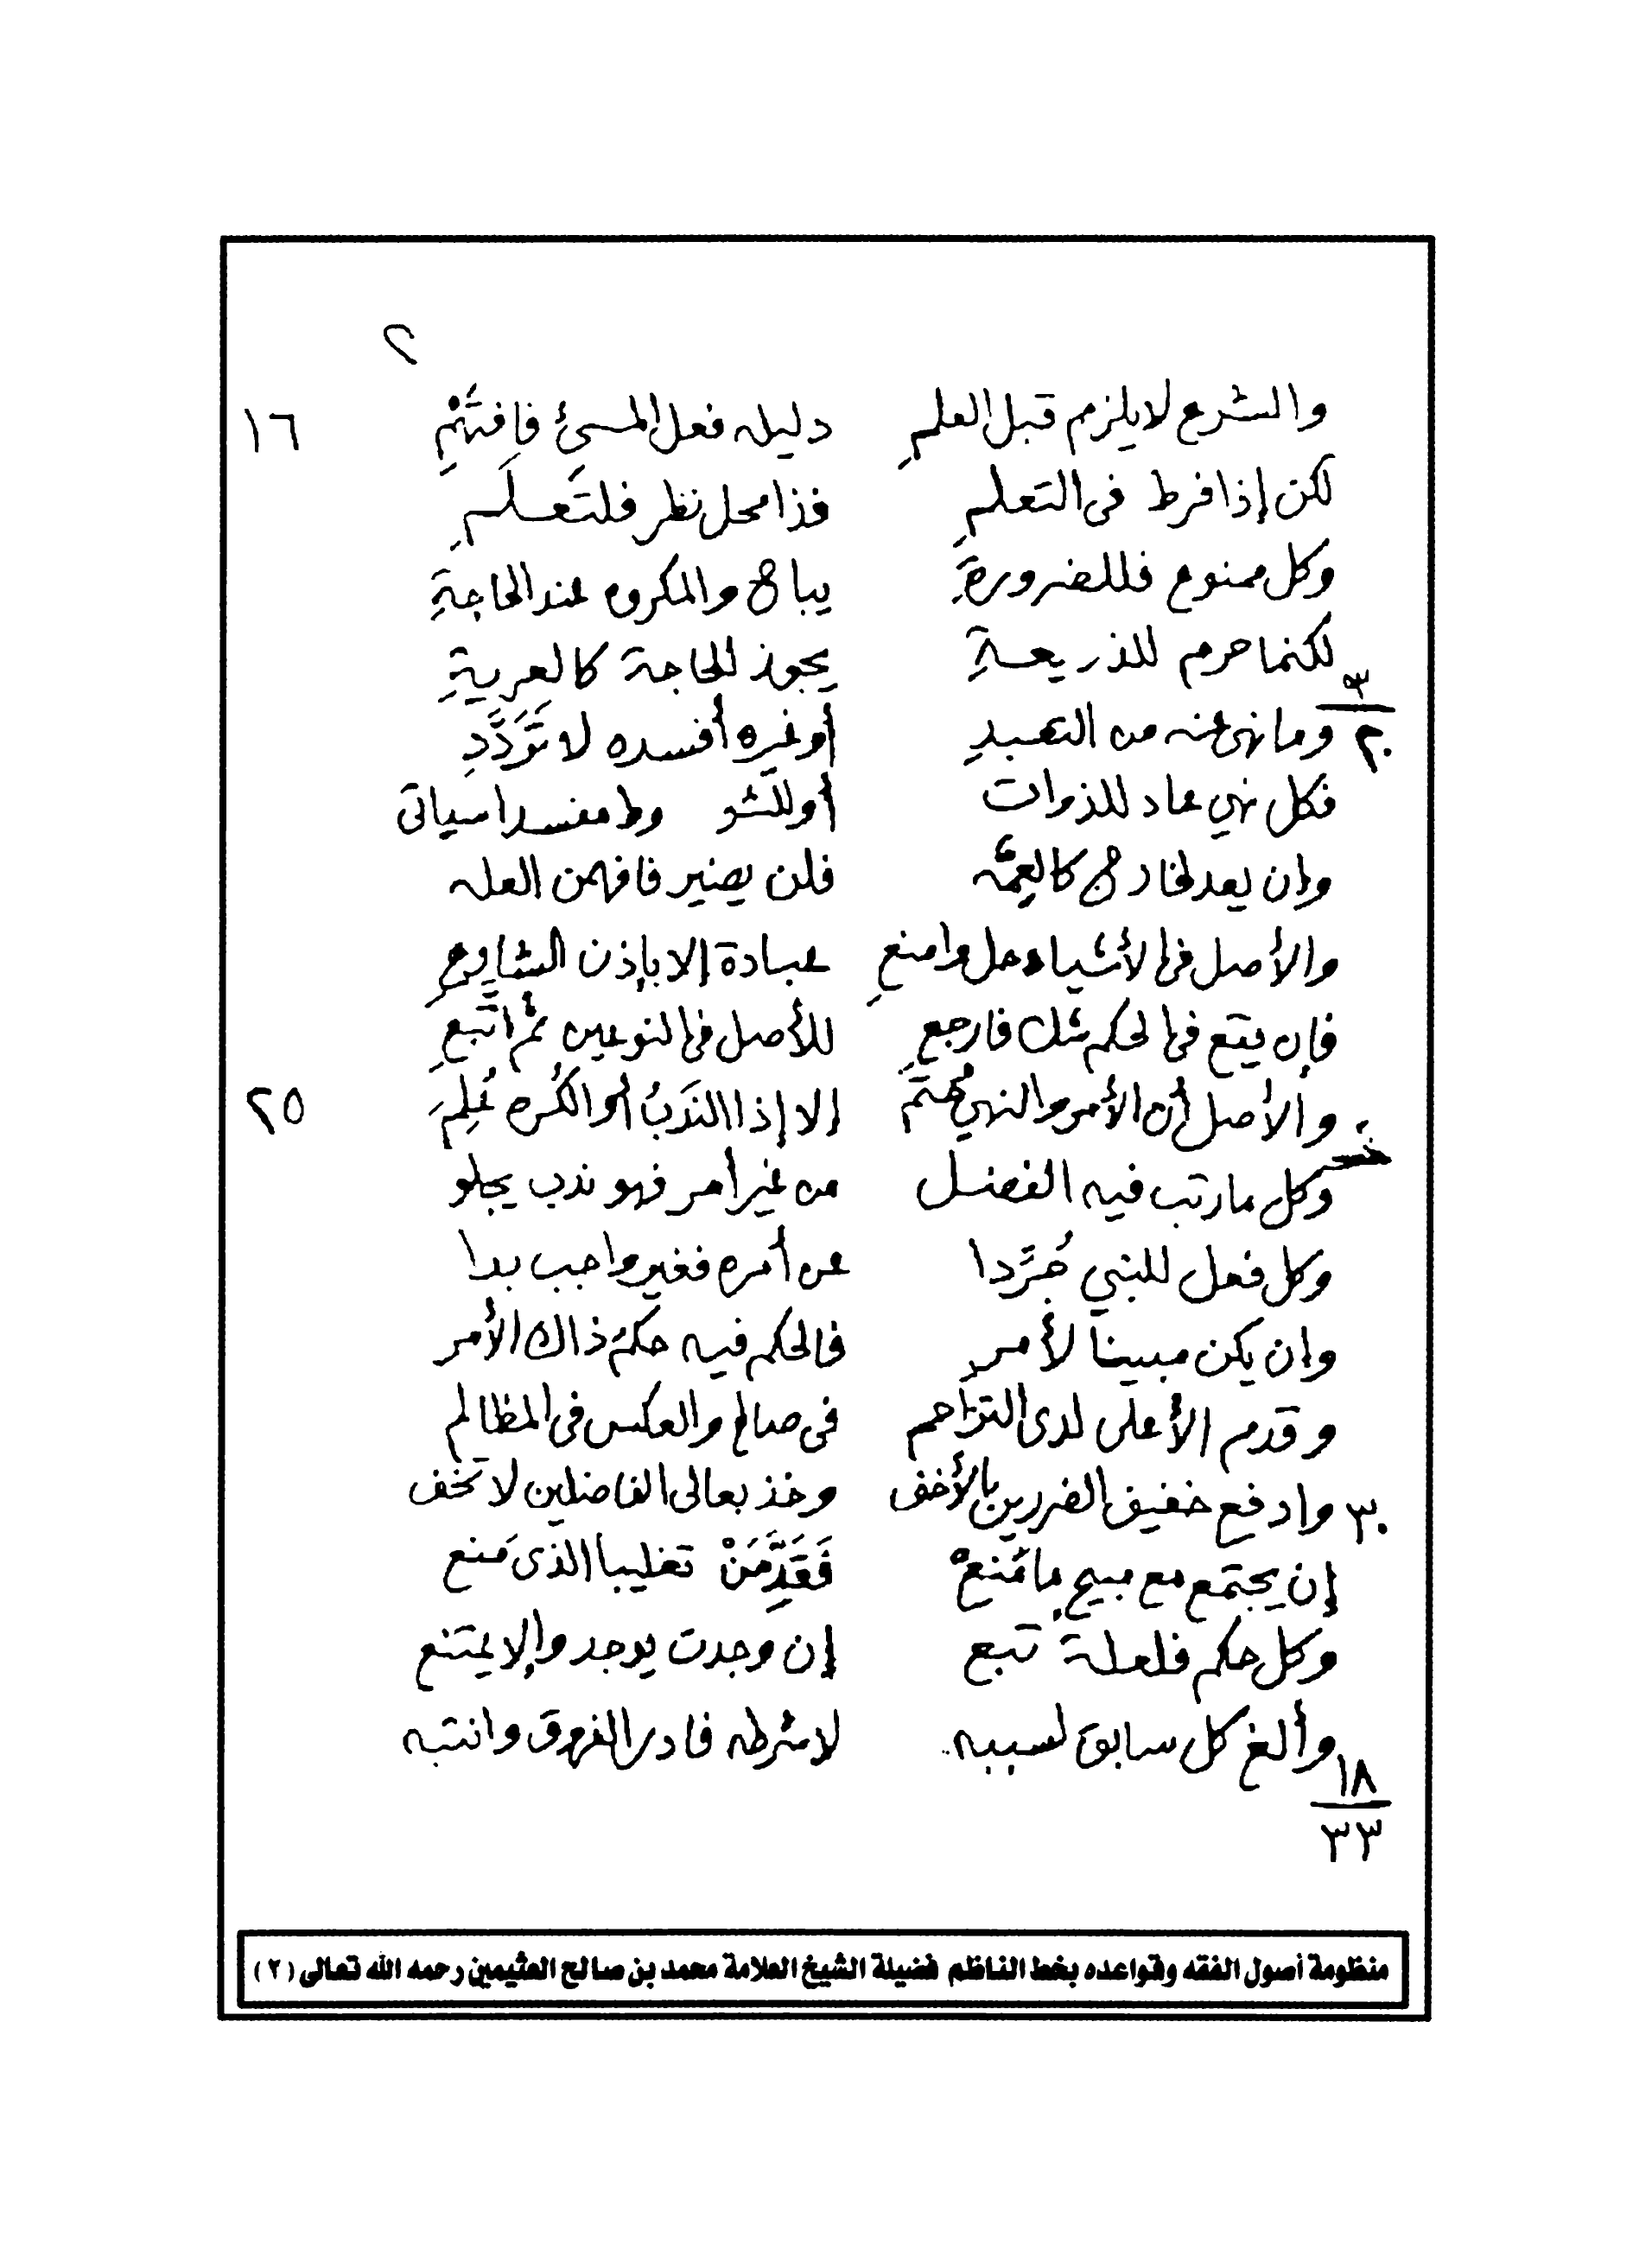 ٢
والشرع لا يلزم قبل العلمِ دليله فعل المسئ فافتَهْمِ ١٦
لكن إذا فرط فى التعلمِ فذا محل نظر فلتَعلَمِ
وكل ممنوع فللضرورةِ يباح والمكروه عند الحاجةِ
لكنما حرم للذريعةِ يجوز للحاجة كالعريةِ
٣
٢٠ وما نهى عنه من التعبدِ أو غيره أفسده لا تَرَدَّدِ
فكل نهي عاد للذوات أو للشروط مفسدا سياتى
وإن يعد لخارج كالعِمَّه فلن يضير فافهمن العله
والأصل فى الأشياء حل وامنعِ عبادة إلا بإذن الشارعِ
فإن يقع فى الحكم شك فارجعِ للأصل فى النوعين ثم اتَّبعِ
والأصل أن الأمر والنهي حُتِمَ إلا إذا الندَبُ أو الكُره عُلِمَ ٢٥
وكل ما رتب فيه الفضل من غير أمر فهو ندب يجلو
وكل فعل للنبي جُرِّدا عن أمره فغير واجب بدا
وإن يكن مبينا لأمرِ فالحكم فيه حكمُ ذاك الأمر
وقدم الأعلى لدى التزاحم فى صالح والعكس فى المظالم
٣٠ وادفع خفيف الضررين بالأخف وخذ بعالى الفاضلين لا تخف
إن يجتمع مع مبيحٍ ما مُنِعْ فَقَدِّمَنْ تغليبا الذى مَنع
وكل حكم فلعلة تبع إن وجدت يوجد وإلا يمتنع
وألغ كل سابق لسببه لا شرطه فادر الفروق وانتبه
١٨
٣٣
منظومة أصول الفقه وقواعده بخط الناظم فضيلة الشيخ العلامة محمد بن صالح العثيمين رحمه الله تعالى (٢)